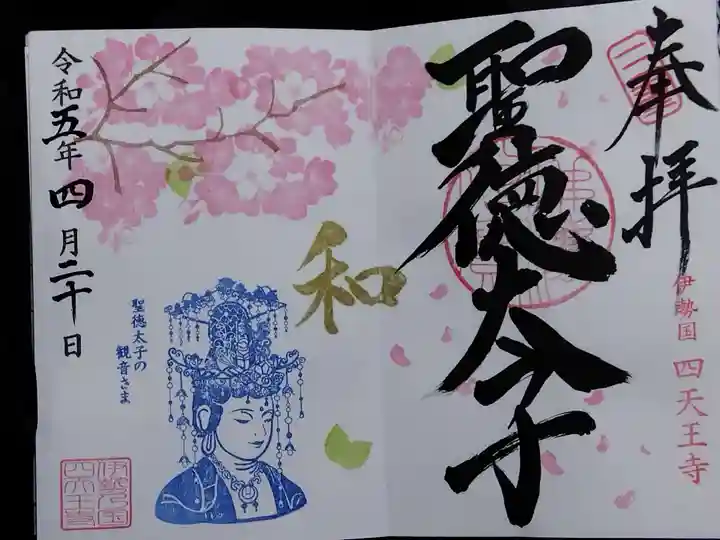 奉拝
伊勢国 四天王寺
聖徳太子
和
聖徳太子の
観音さま
令和五年四月二十日